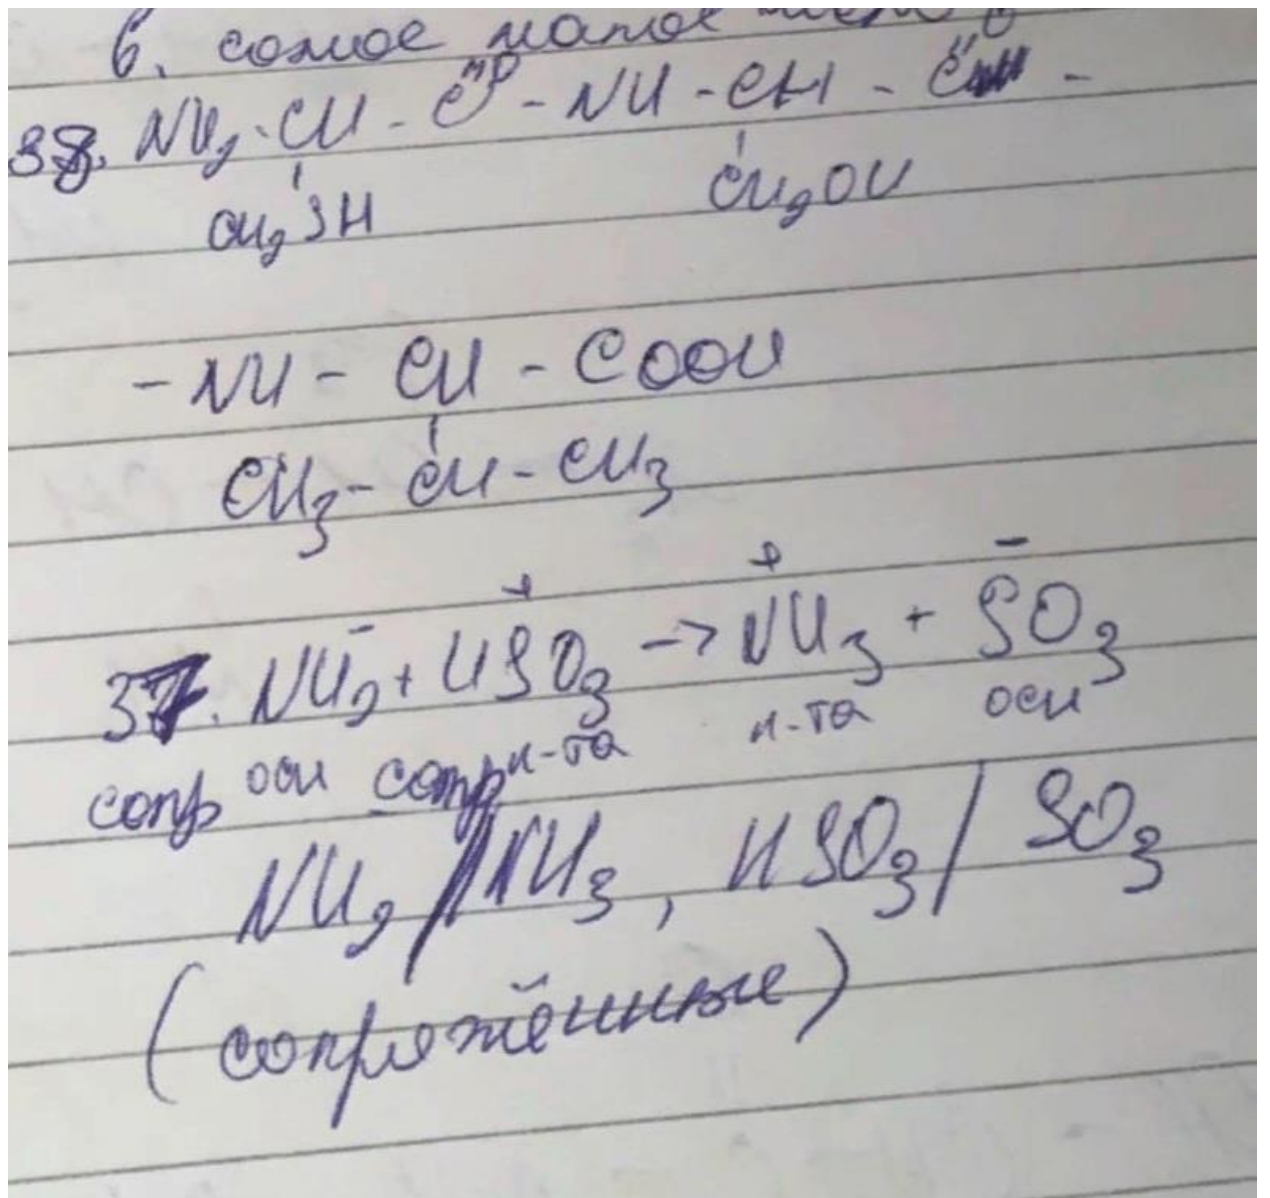 6. самое малое число
38. NH2 - CH - C - NH - CH - C -
CH2SH CH2OH
- NH - CH - COOH
CH3 - CH - CH3
37. NH2⁻ + HSO3⁺ → NH3⁺ + SO3⁻
сопр осн сопр к-та к-та осн
NH2 / NH3, HSO3 / SO3
(сопряжённые)